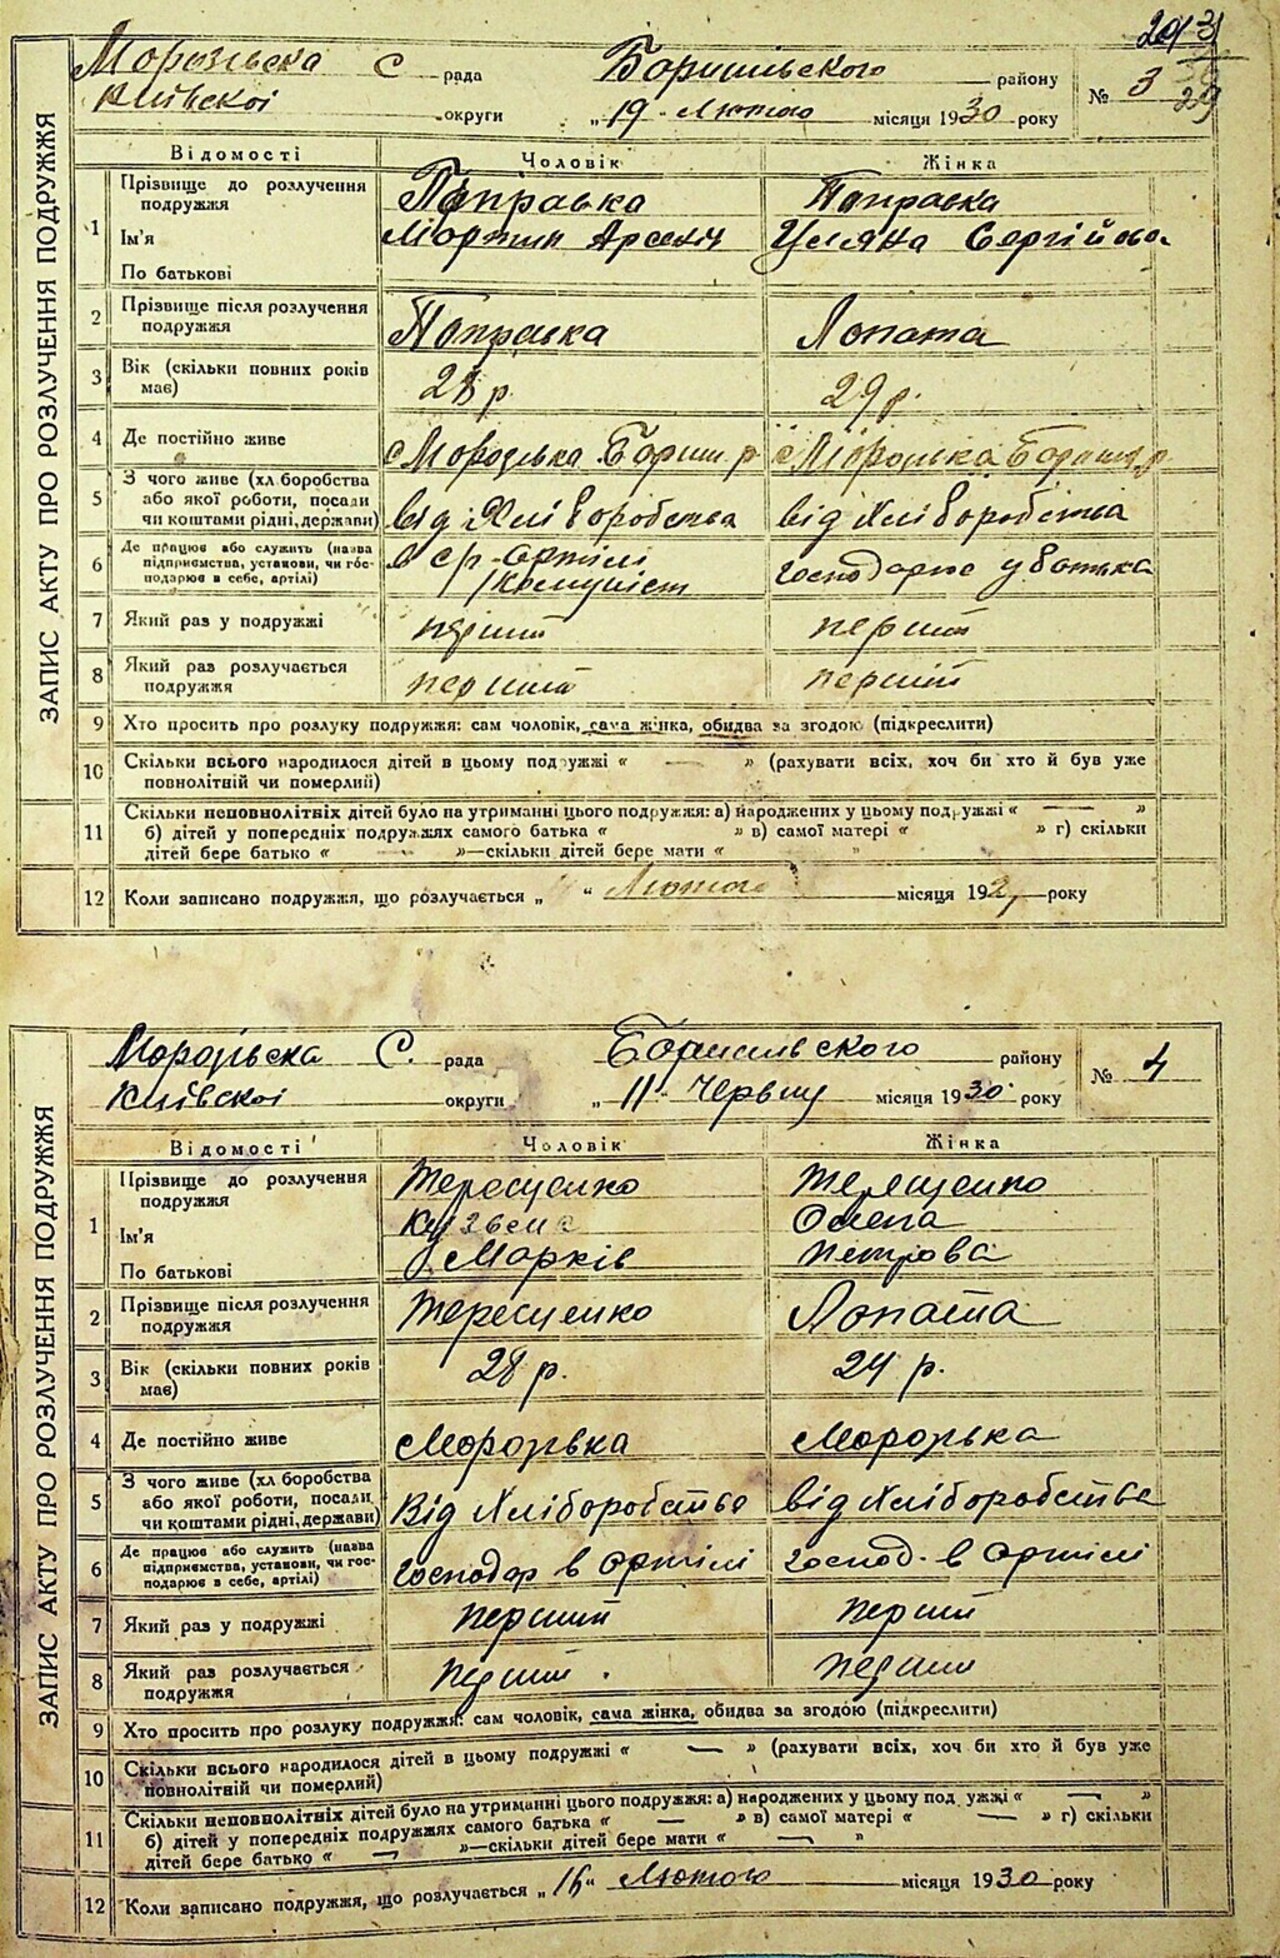 Морозівска С рада Бориспільского району № 3
Київскої округи „19“ Лютого місяця 1930 року
ЗАПИС АКТУ ПРО РОЗЛУЧЕННЯ ПОДРУЖЖЯ
Відомості Чоловік Жінка
1 Прізвище до розлучення подружжя Поправка Поправка
Ім'я Мартин Арсеніч Уляна Сергійова
По батькові
2 Прізвище після розлучення подружжя Поправка Лопата
3 Вік (скільки повних років має) 28 р 29 р.
4 Де постійно живе с Морозівка Бориш. р с Морозівка Бориш. р
5 З чого живе (хл боробства або якої роботи, посади чи коштами рідні, держави) від Хліборобства від Хліборобства
6 Де працює або служить (назва підприємства, установи, чи господарює в себе, артілі) в с/г артілі господарює у батька
/комуніст
7 Який раз у подружжі перший перший
8 Який раз розлучається подружжя перший перший
9 Хто просить про розлуку подружжя: сам чоловік, сама жінка, обидва за згодою (підкреслити)
10 Скільки всього народилося дітей в цьому подружжі « — » (рахувати всіх, хоч би хто й був уже
повнолітній чи померлий)
11 Скільки неповнолітніх дітей було на утриманні цього подружжя: а) народжених у цьому подружжі « — »
б) дітей у попередніх подружжях самого батька « » в) самої матері « » г) скільки
дітей бере батько « — »—скільки дітей бере мати « »
12 Коли записано подружжя, що розлучається „ “ Лютого місяця 192 року
Морозівска С. рада Бориспільского району № 4
Київскої округи „11“ Червня місяця 1930 року
ЗАПИС АКТУ ПРО РОЗЛУЧЕННЯ ПОДРУЖЖЯ
Відомості Чоловік Жінка
1 Прізвище до розлучення подружжя Терещенко Терещенко
Ім'я Кузьма Олена
По батькові Марків Петрова
2 Прізвище після розлучення подружжя Терещенко Лопата
3 Вік (скільки повних років має) 28 р. 24 р.
4 Де постійно живе Морозівка Морозівка
5 З чого живе (хл боробства або якої роботи, посади, чи коштами рідні, держави) Від Хліборобства від Хліборобства
6 Де працює або служить (назва підприємства, установи, чи господарює в себе, артілі) господар в артілі господ. в артілі
7 Який раз у подружжі перший перший
8 Який раз розлучається подружжя перший перший
9 Хто просить про розлуку подружжя: сам чоловік, сама жінка, обидва за згодою (підкреслити)
10 Скільки всього народилося дітей в цьому подружжі « — » (рахувати всіх, хоч би хто й був уже
повнолітній чи померлий)
11 Скільки неповнолітніх дітей було на утриманні цього подружжя: а) народжених у цьому под ужжі « — »
б) дітей у попередніх подружжях самого батька « — » в) самої матері « — » г) скільки
дітей бере батько « — »—скільки дітей бере мати « — »
12 Коли записано подружжя, що розлучається „16“ Лютого місяця 1930 року